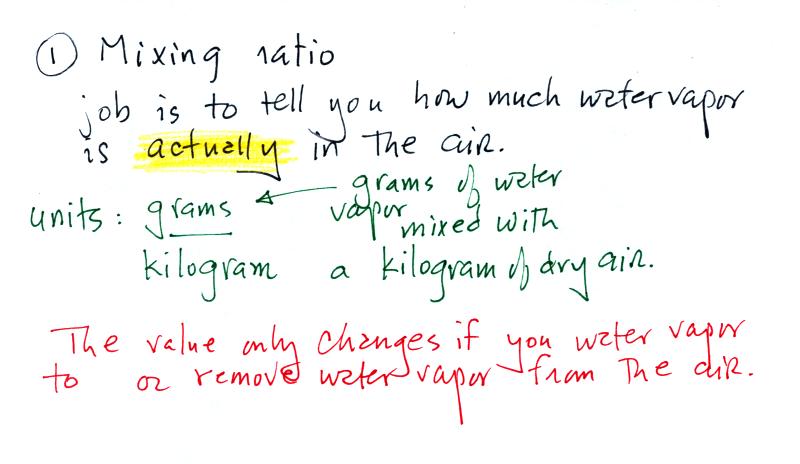 ① Mixing ratio
job is to tell you how much water vapor
is actually in the air.
units: grams
kilogram
grams of water
vapor mixed with
a kilogram of dry air.
The value only changes if you water vapor
to or remove water vapor from the air.